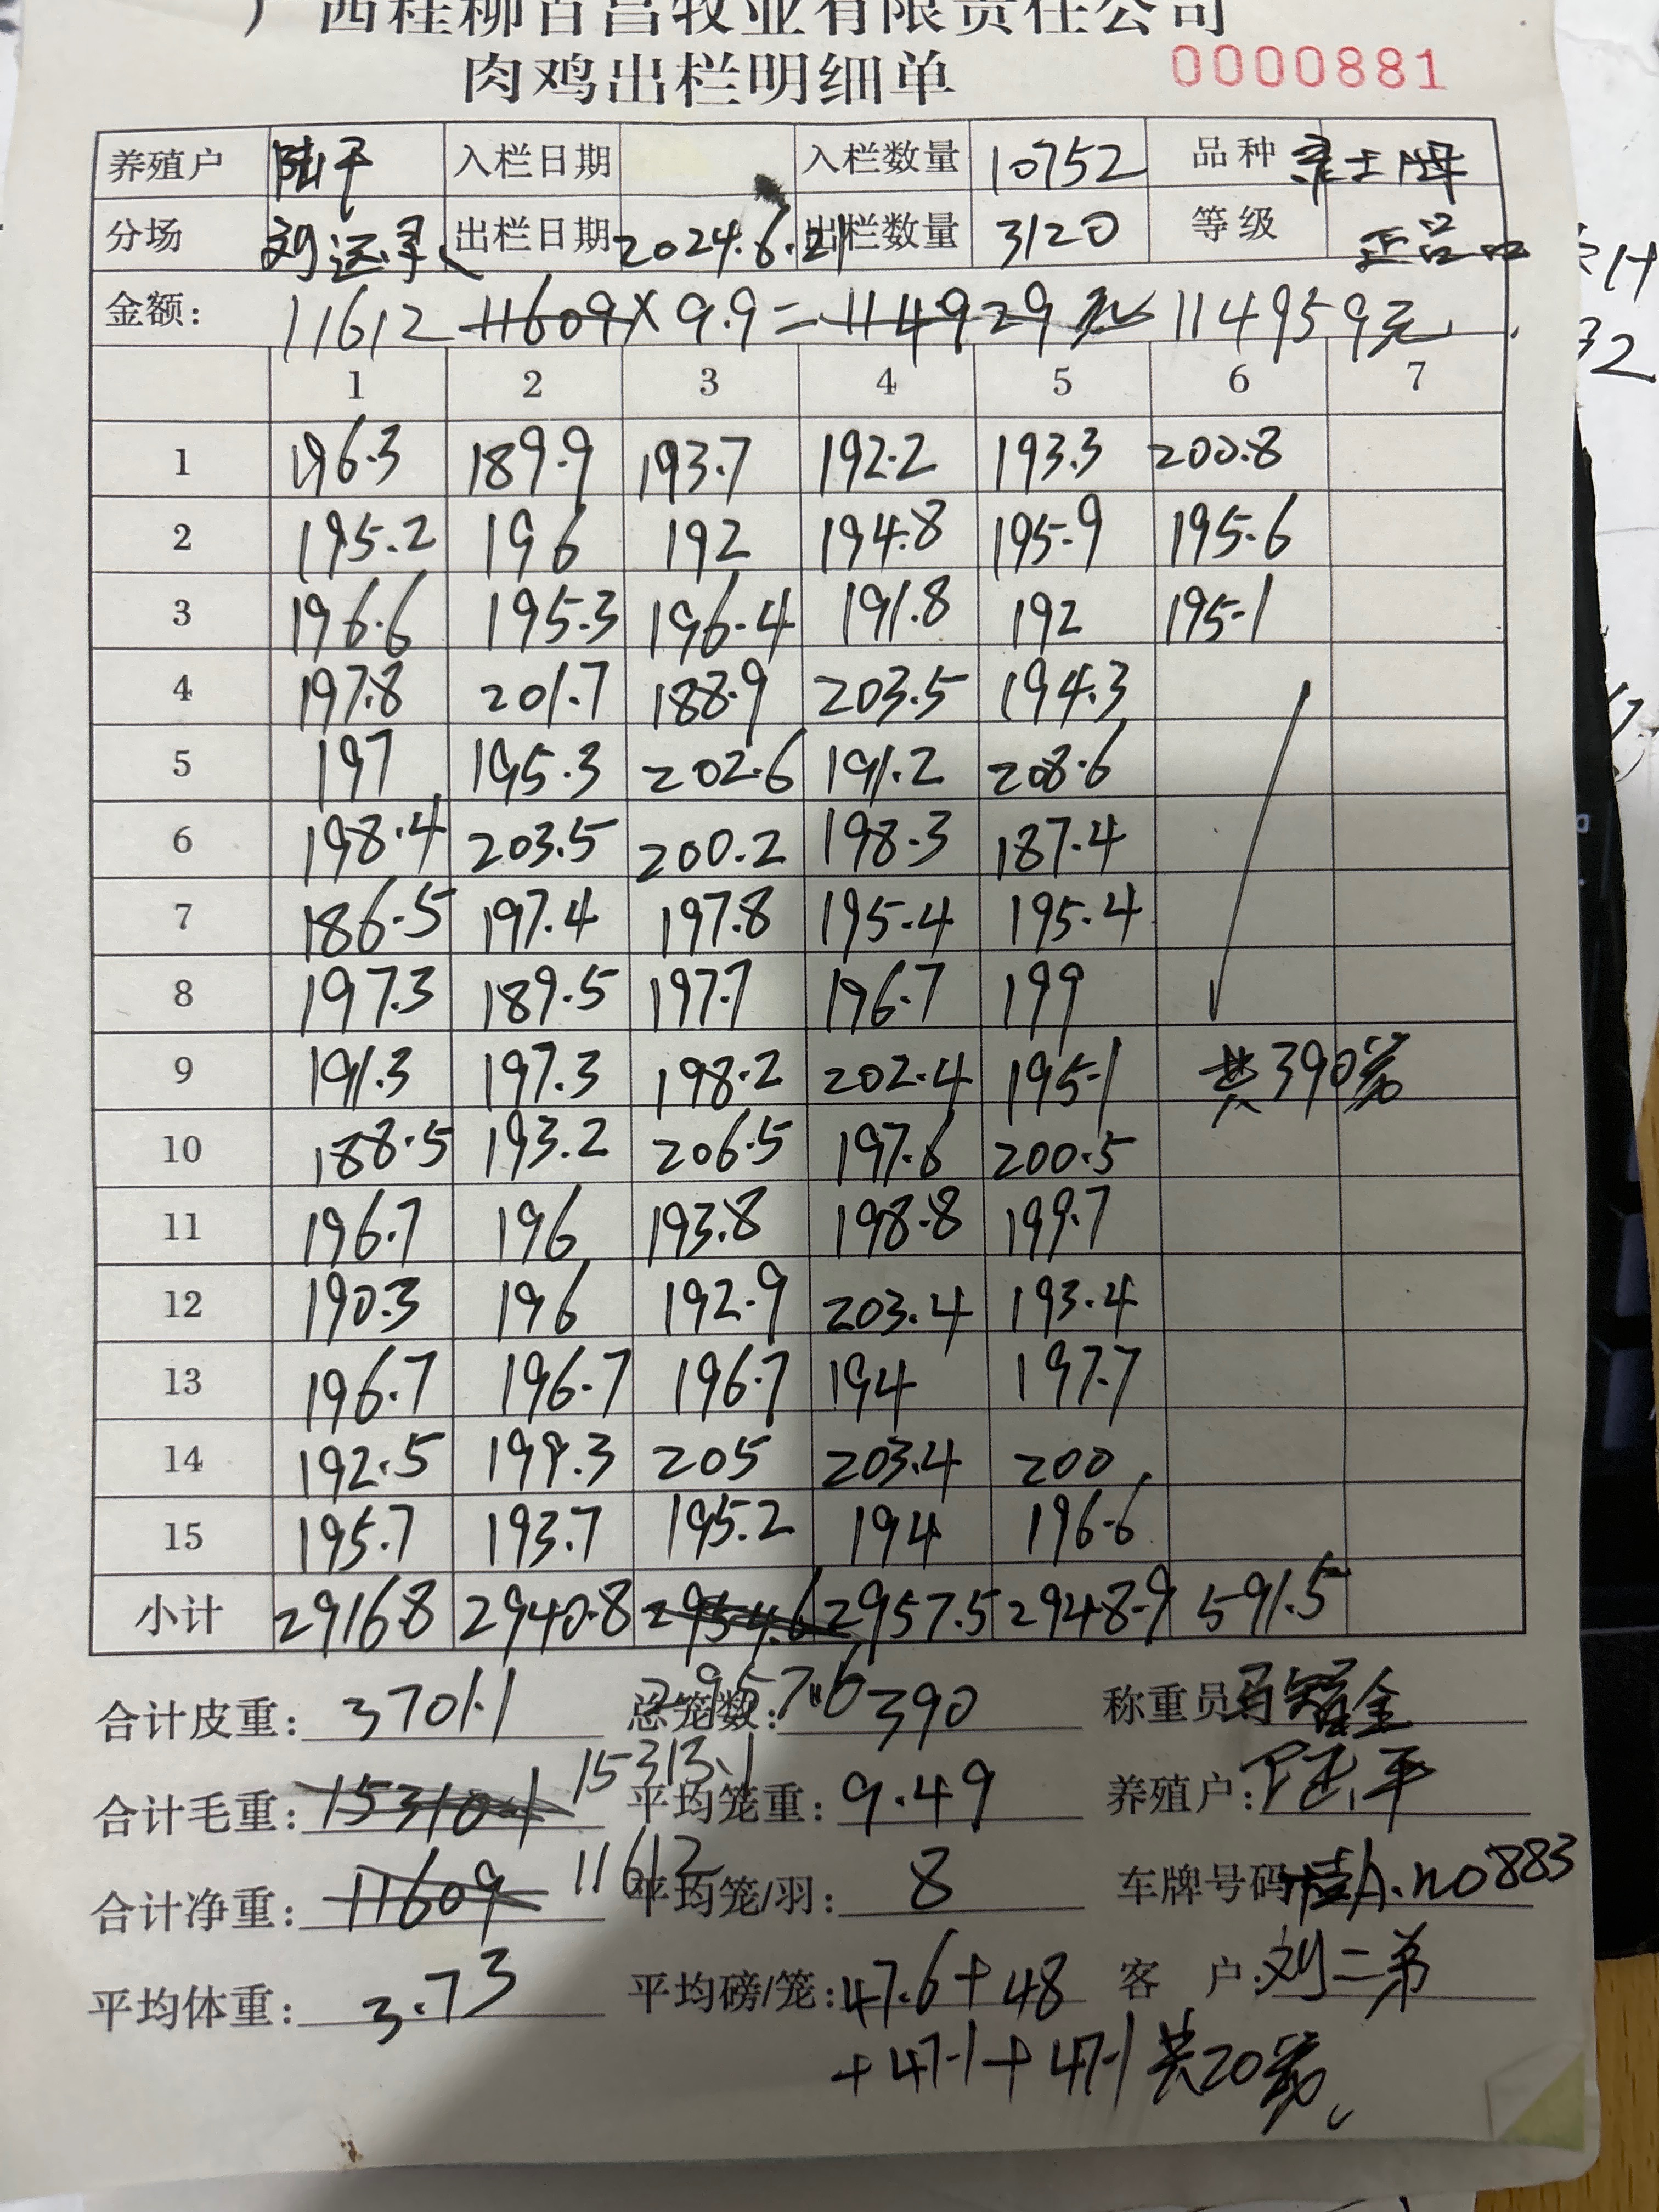 广西桂柳百昌牧业有限责任公司
肉鸡出栏明细单 0000881
养殖户 陆平 入栏日期 入栏数量 10752 品种
分场 出栏日期 2024.6.21 出栏数量 3120 等级 正品
金额: 11612 11609×9.9=114929元 114959元
1 2 3 4 5 6 7
1 196.3 189.9 193.7 192.2 193.3 200.8
2 195.2 196 192 194.8 195.9 195.6
3 196.6 195.3 196.4 191.8 192 195.1
4 197.8 201.7 188.9 203.5 194.3
5 197 195.3 202.6 191.2 208.6
6 198.4 203.5 200.2 198.3 187.4
7 186.5 197.4 197.8 195.4 195.4
8 197.3 189.5 197.7 196.7 199
9 191.3 197.3 198.2 202.4 195.1 共390笼
10 188.5 193.2 206.5 197.6 200.5
11 196.7 196 193.8 198.8 199.7
12 190.3 196 192.9 203.4 193.4
13 196.7 196.7 196.7 194 197.7
14 192.5 199.3 205 203.4 200
15 195.7 193.7 195.2 194 196.6
小计 2916.8 2940.8 2954.6 2957.5 2948.9 591.5
2957.6
合计皮重: 3701.1 总笼数: 390 称重员
合计毛重: 15310.1 15313.1 平均笼重: 9.49 养殖户: 陆平
合计净重: 11609 11612 平均笼/羽: 8 车牌号码 桂A.n0883
平均体重: 3.73 平均磅/笼: 47.6+48 客户: 刘二弟
+47.1+47.1共20笼